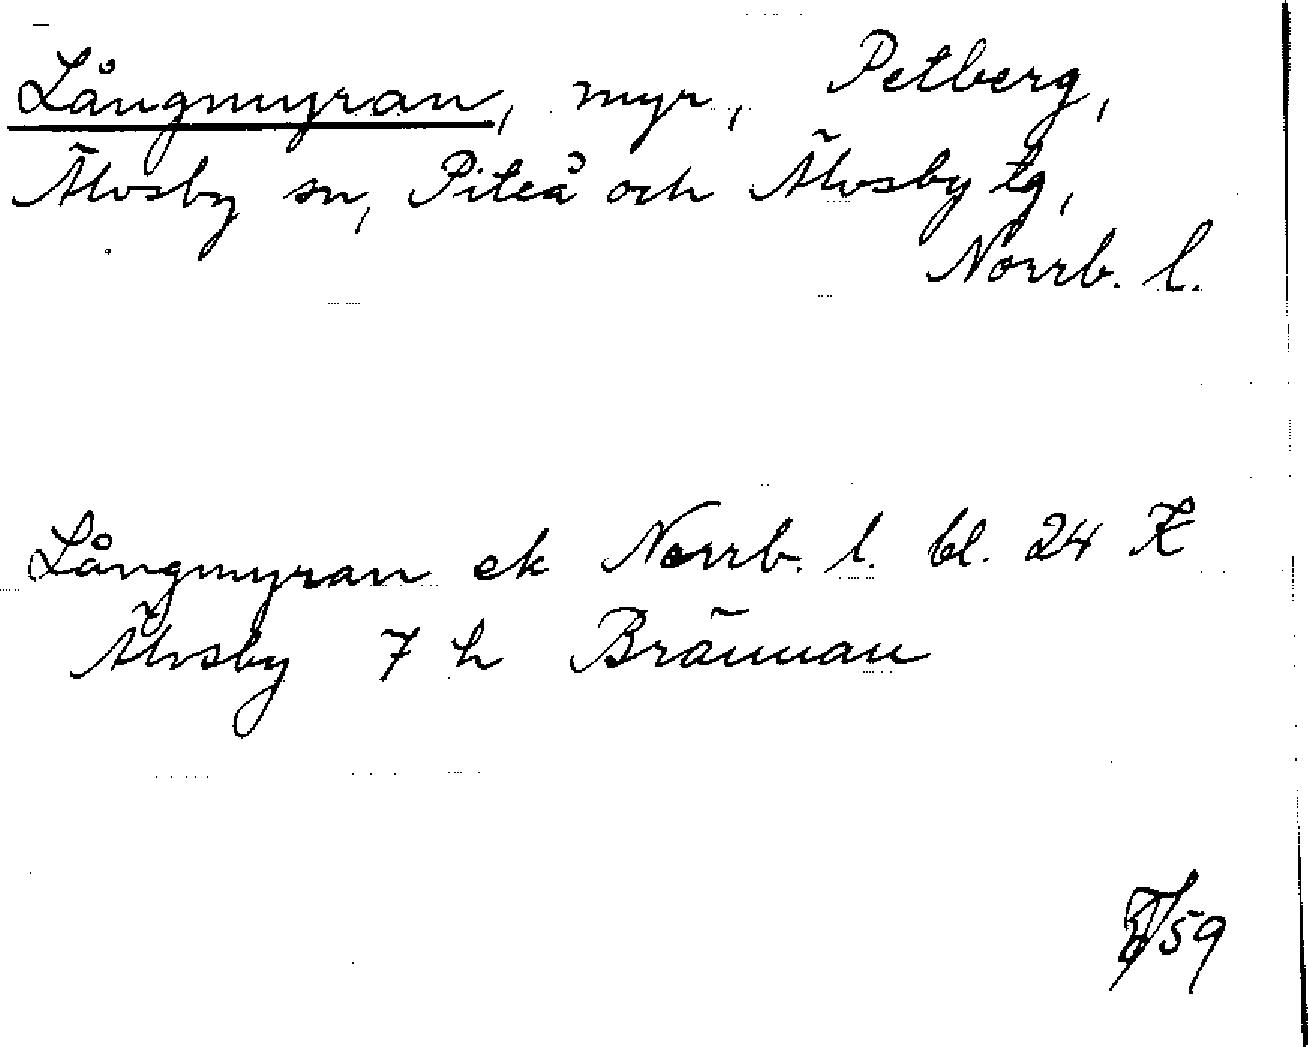 Långmyran, myr, Petberg,
Älvsby sn, Piteå och Älvsby tg,
Norrb. l.
Långmyran ek Norrb. l. bl. 24 K
Älvsby 7 h Brännan
59